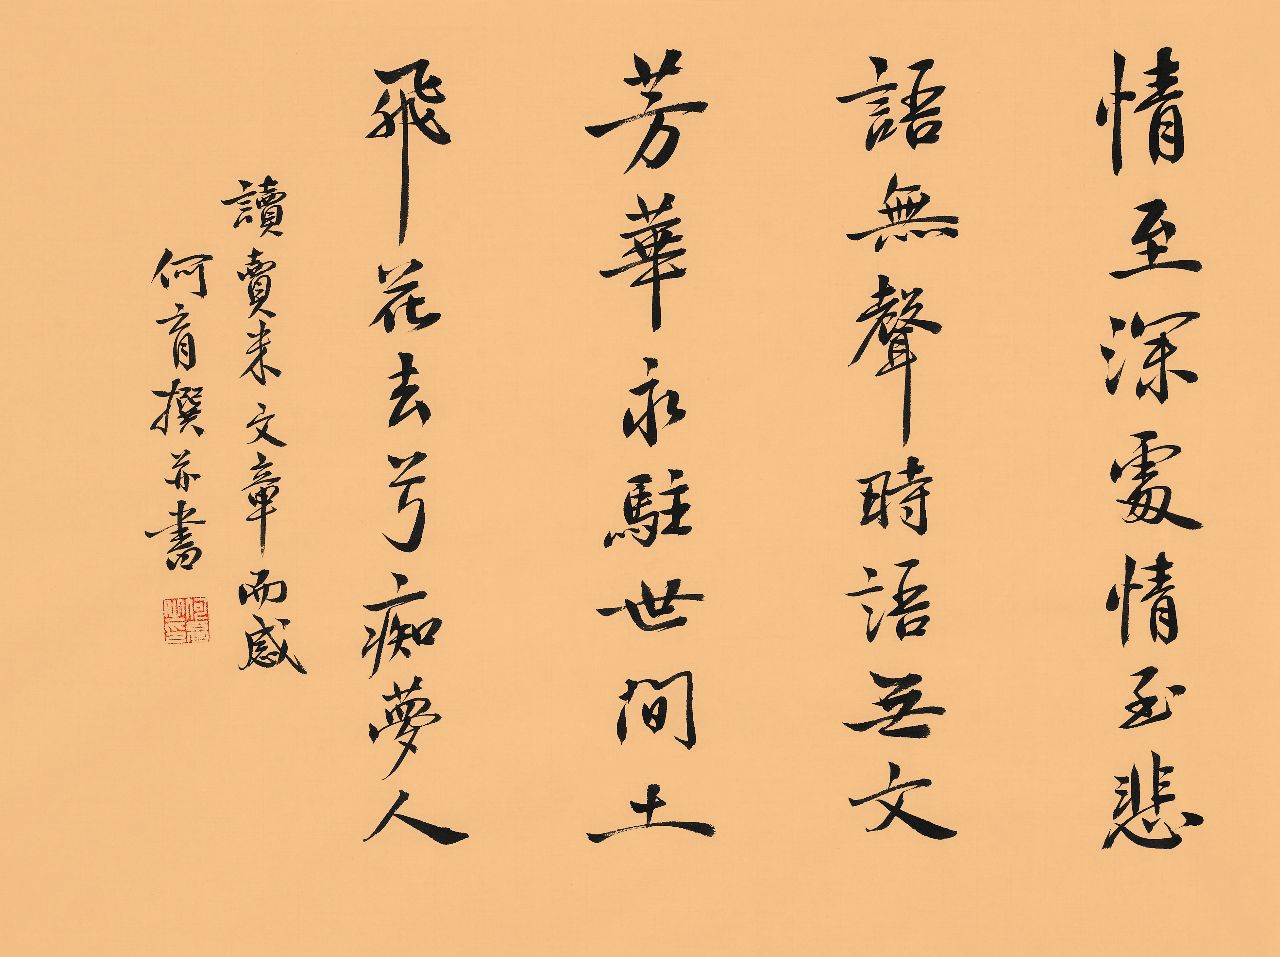 情至深處情至悲
語無聲時語無文
芳華永駐世間土
飛花去兮痴夢人
讀賣米文章而感
何育撰并書